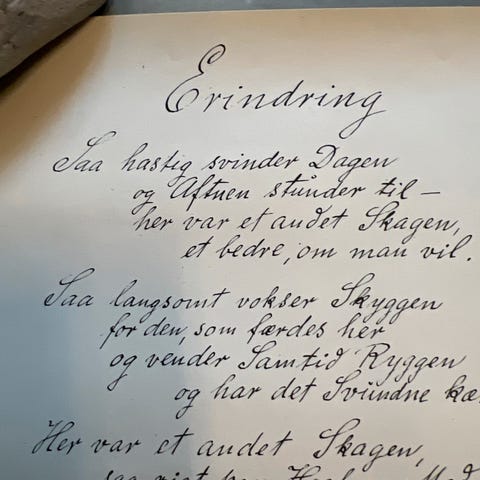 Erindring
Saa hastig svinder Dagen
og Aftnen stunder til –
her var et andet Skagen,
et bedre, om man vil.
Saa langsomt vokser Skyggen
for den, som færdes her
og vender Samtid Ryggen
og har det Svundne kæ
Her var et andet Skagen,